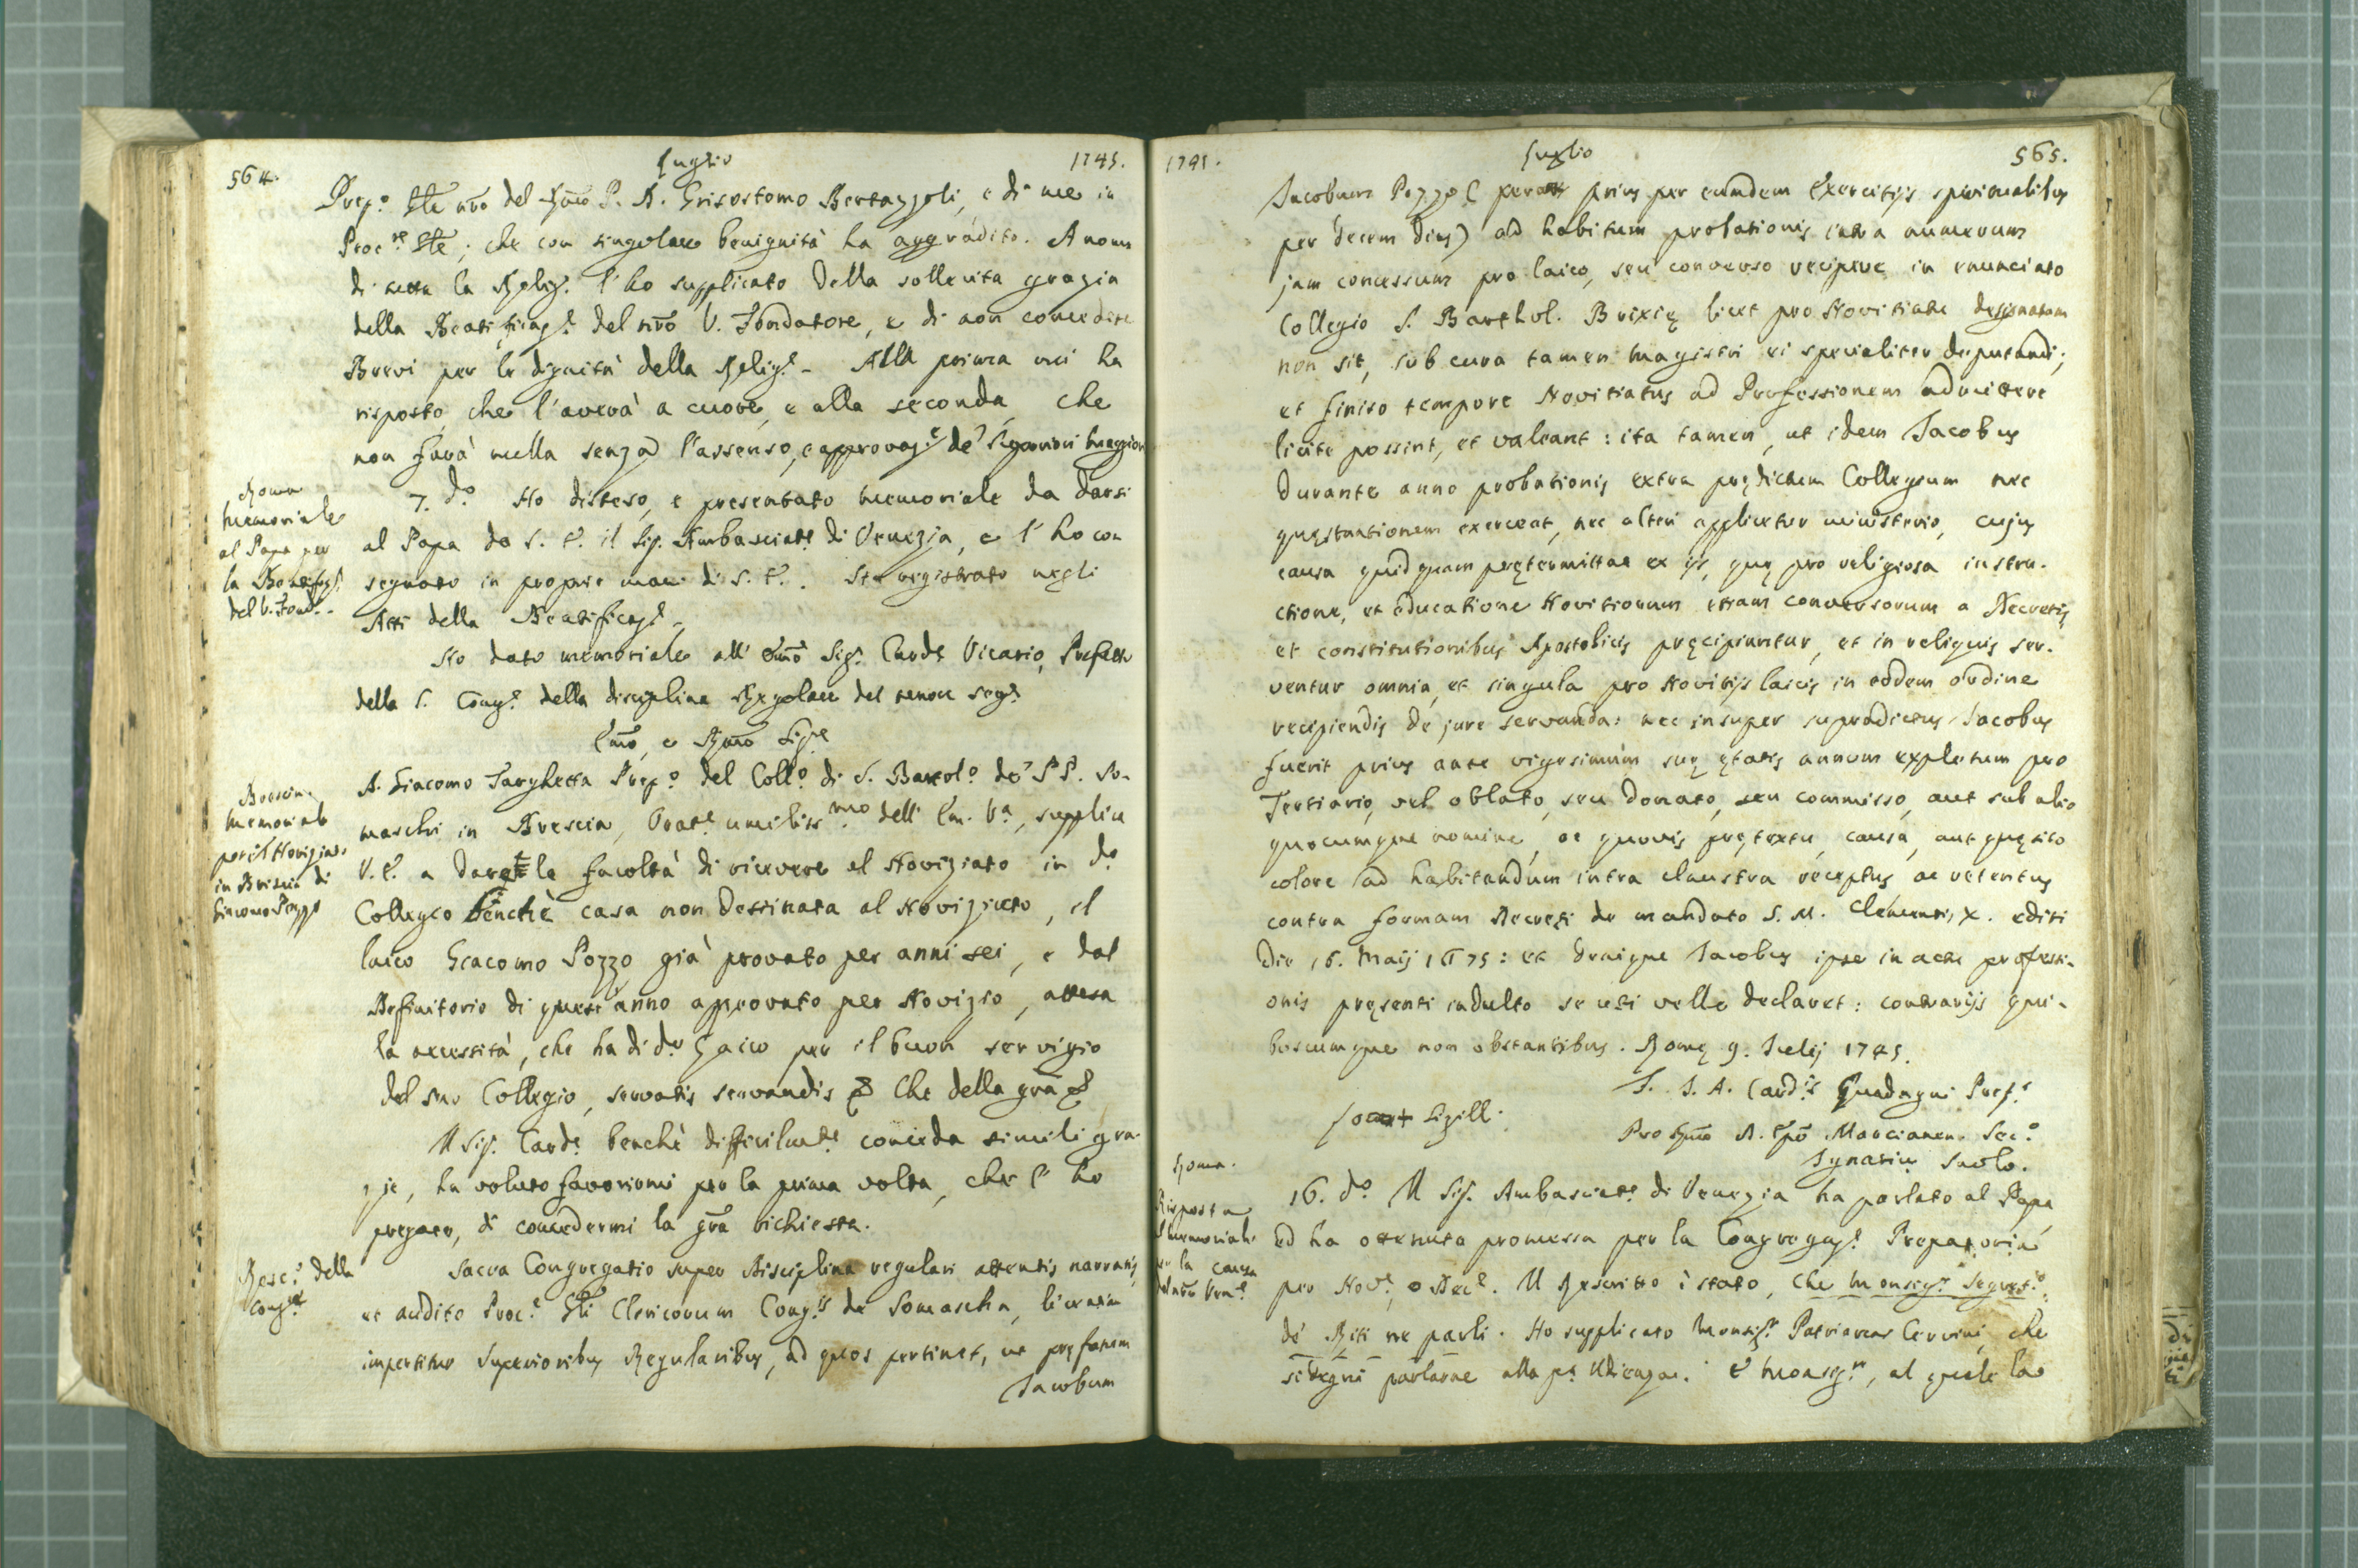 564.
Luglio
1745.
Prep.º Gle nrõ del Rmõ P. D. Grisostomo Bertazzoli, e di me in
Proc.re Gle; che con singolare benignità ha aggradito. A nome
di tutta la Relig.e l'ho supplicato della sollecita grazia
della Beatificaz.e del nrõ V. Fondatore, e di non concedere
Brevi per le dignità della Relig.e - Alla prima mi ha
risposto, che l'averà a cuore, e alla seconda, che
non farà nulla senza l'assenso, e approvaz.e de' Superiori Maggiori
Roma
Memoriale
al Papa per
la Beatificaz.e
del V. Fond.e
7. dº Ho disteso, e presentato memoriale da darsi
al Papa da S. E. il Sig. Ambasciat.e di Venezia, e l'ho con
segnato in proprie mani di S. E. Sta registrato negli
Atti della Beatificaz.e
Ho dato memoriale all' Emõ Sig.r Card.e Vicario, Prefetto
della S. Cong.e della disciplina Regolare del tenor seg.e
Emõ, e Rmõ Sig.re
Brescia.
Memoriale
per il Noviziato
in Brescia di
Giacomo Pozzo
D. Giacomo Targhetta Prep.º del Coll.º di S. Bartol.º de' PP. So-
maschi in Brescia, Orat.e umiliss.mo dell' Em. V.a, supplica
V. E. a dargle la facoltà di ricevere al Noviziato in dº
Collegio benchè casa non destinata al Noviziato, il
laico Giacomo Pozzo già provato per anni sei, e dal
Definitorio di quest'anno approvato per Novizio, attesa
la necessità, che ha di dº Laico per il buon servigio
del suo Collegio, servatis servandis & Che della grã &
Il Sig. Card.e benchè difficilm.te conceda simili gra-
zie, ha voluto favorirmi per la prima volta, che l'ho
pregato, di concedermi la grã richiesta.
Resc.º della
Cong.e
Sacra Congregatio super Disciplina regulari attentis narratis,
et audito Proc.e Gli Clericorum Cong.is de Somascha, licentiam
impertitur Superioribus Regularibus, ad quos pertinet, ut pręfatum
Jacobum
1745.
Luglio
565.
Jacobum Pozzo (peract prius per eumdem Exercitijs spiritualibus
per decem dies) ad habitum probationis intra numerum
jam concessum pro laico, seu converso recipere in enunciato
Collegio S. Barthol. Brixię licet pro Novitiatu designatum
non sit, sub cura tamen Magistri ei specialiter deputandi;
et finito tempore Novitiatus ad Professionem admittere
licite possint, et valeant: ita tamen, ut idem Jacobus
durante anno probationis extra prędictum Collegium nec
quęstuationem exerceat, nec alteri applicetur ministerio, cujus
causa quidquam prętermittat ex ijs, quę pro religiosa instru-
ctione, et educatione Novitiorum etiam conversorum a Decretis
et constitutionibus Apostolicis pręcipiuntur, et in reliquis ser-
ventur omnia, et singula pro Novitijs laicis in eodem ordine
recipiendis de jure servanda: nec insuper supradictus Jacobus
fuerit prius ante vigesimum suę ętatis annum expletum pro
Tertiario, vel oblato, seu donato, seu commisso, aut sub alio
quocumque nomine, ac quovis prętextu, causa, aut quęsito
colore ad habitandum intra claustra receptus ac retentus
contra formam Decreti de mandato S. M. Clementis X. editi
die 16. Maij 1675: et denique Jacobus ipse in actu professi-
onis pręsenti indulto se uti velle declaret: contrarijs qui-
buscumque non obstantibus. Romę 9. Julij 1745.
F. J. A. Card.is Guadagni Pref.s
Loc + Sigill.
Pro Rmõ D. Epõ Marcianen. Sec.º
Ignatius
Roma.
Risposta
al memoriale
per la causa
del nrõ Ven.e
16. dº Il Sig. Ambasciat.e di Venezia ha parlato al Papa,
ed ha ottenuta promessa per la Congregaz.e Preparatoria
per Nov.e, o Dec.e. Il Rescritto è stato, che Monsig.r Segret.º
de' Riti ne parli. Ho supplicato Monsig.r Patriarca Cervini, che
si degni parlarne alla p.a Udienza. E Monsig.r, al quale la